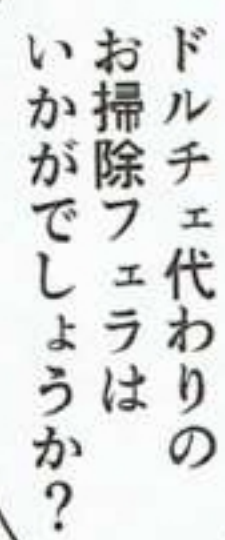 ドルチェ代わりの
お掃除フェラは
いかがでしょうか？